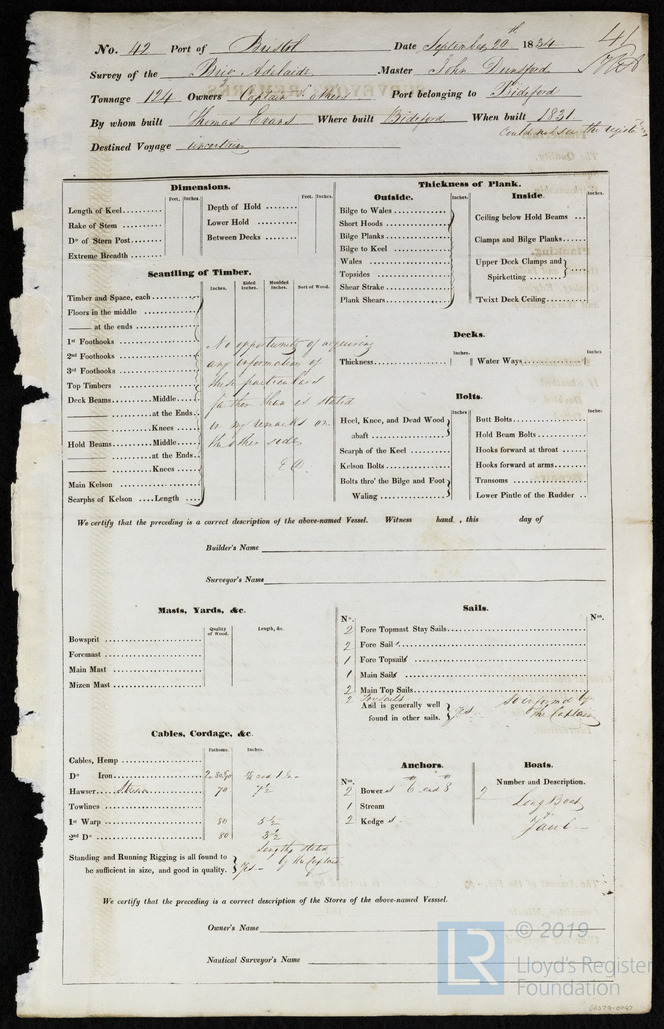 41
No. 42 Port of Bristol Date September 20th 1834
Survey of the Brig Adelaide Master John Dunsford
Tonnage 124 Owners Captain & others Port belonging to Bideford
By whom built Thomas Evans Where built Bideford When built 1831
Could not see the register
Destined Voyage uncertain
Dimensions.
Feet. Inches. Feet. Inches.
Length of Keel
Rake of Stem
Do of Stern Post
Extreme Breadth
Depth of Hold
Lower Hold
Between Decks
Scantling of Timber.
Inches. Sided Inches. Moulded Inches. Sort of Wood.
Timber and Space, each
Floors in the middle
—— at the ends
1st Foothooks
2nd Foothooks
3rd Foothooks
Top Timbers
Deck Beams Middle
—— at the Ends
—— Knees
Hold Beams Middle
—— at the Ends
—— Knees
Main Kelson
Scarphs of Kelson Length
No opportunity of acquiring
any information of
these particulars
farther than is stated
in my remarks on
the other side
Thickness of Plank.
Outside. Inches.
Bilge to Wales
Short Hoods
Bilge Planks
Bilge to Keel
Wales
Topsides
Shear Strake
Plank Shears
Inside. Inches.
Ceiling below Hold Beams
Clamps and Bilge Planks
Upper Deck Clamps and
Spirketting
'Twixt Deck Ceiling
Decks.
Inches. Inches
Thickness Water Ways
Bolts.
Inches Inches
Heel, Knee, and Dead Wood
abaft
Scarph of the Keel
Kelson Bolts
Bolts thro' the Bilge and Foot
Waling
Butt Bolts
Hold Beam Bolts
Hooks forward at throat
Hooks forward at arms
Transoms
Lower Pintle of the Rudder
We certify that the preceding is a correct description of the above-named Vessel. Witness hand , this day of
Builder's Name
Surveyor's Name
Masts, Yards, &c.
Quality of Wood. Length, &c.
Bowsprit
Foremast
Main Mast
Mizen Mast
Sails.
No. Nos.
2 Fore Topmast Stay Sails
2 Fore Sail
1 Fore Topsails
1 Main Sails
2 Main Top Sails
And is generally well
found in other sails.
Yes
so informed by
the Captain
Cables, Cordage, &c.
Fathoms. Inches.
Cables, Hemp
Do Iron
Hawser 70 7½
Towlines
1st Warp 80 5½
2nd Do 80 3½
lengths stated
by the Captain
Standing and Running Rigging is all found to
be sufficient in size, and good in quality.
Yes
Anchors.
Nos.
2 Bowers 6 and 8
1 Stream
2 Kedges
Boats.
Number and Description.
2 Long Boat
&
We certify that the preceding is a correct description of the Stores of the above-named Vesssel.
Owner's Name
Nautical Surveyor's Name
LR © 2019
Lloyd's Register
Foundation